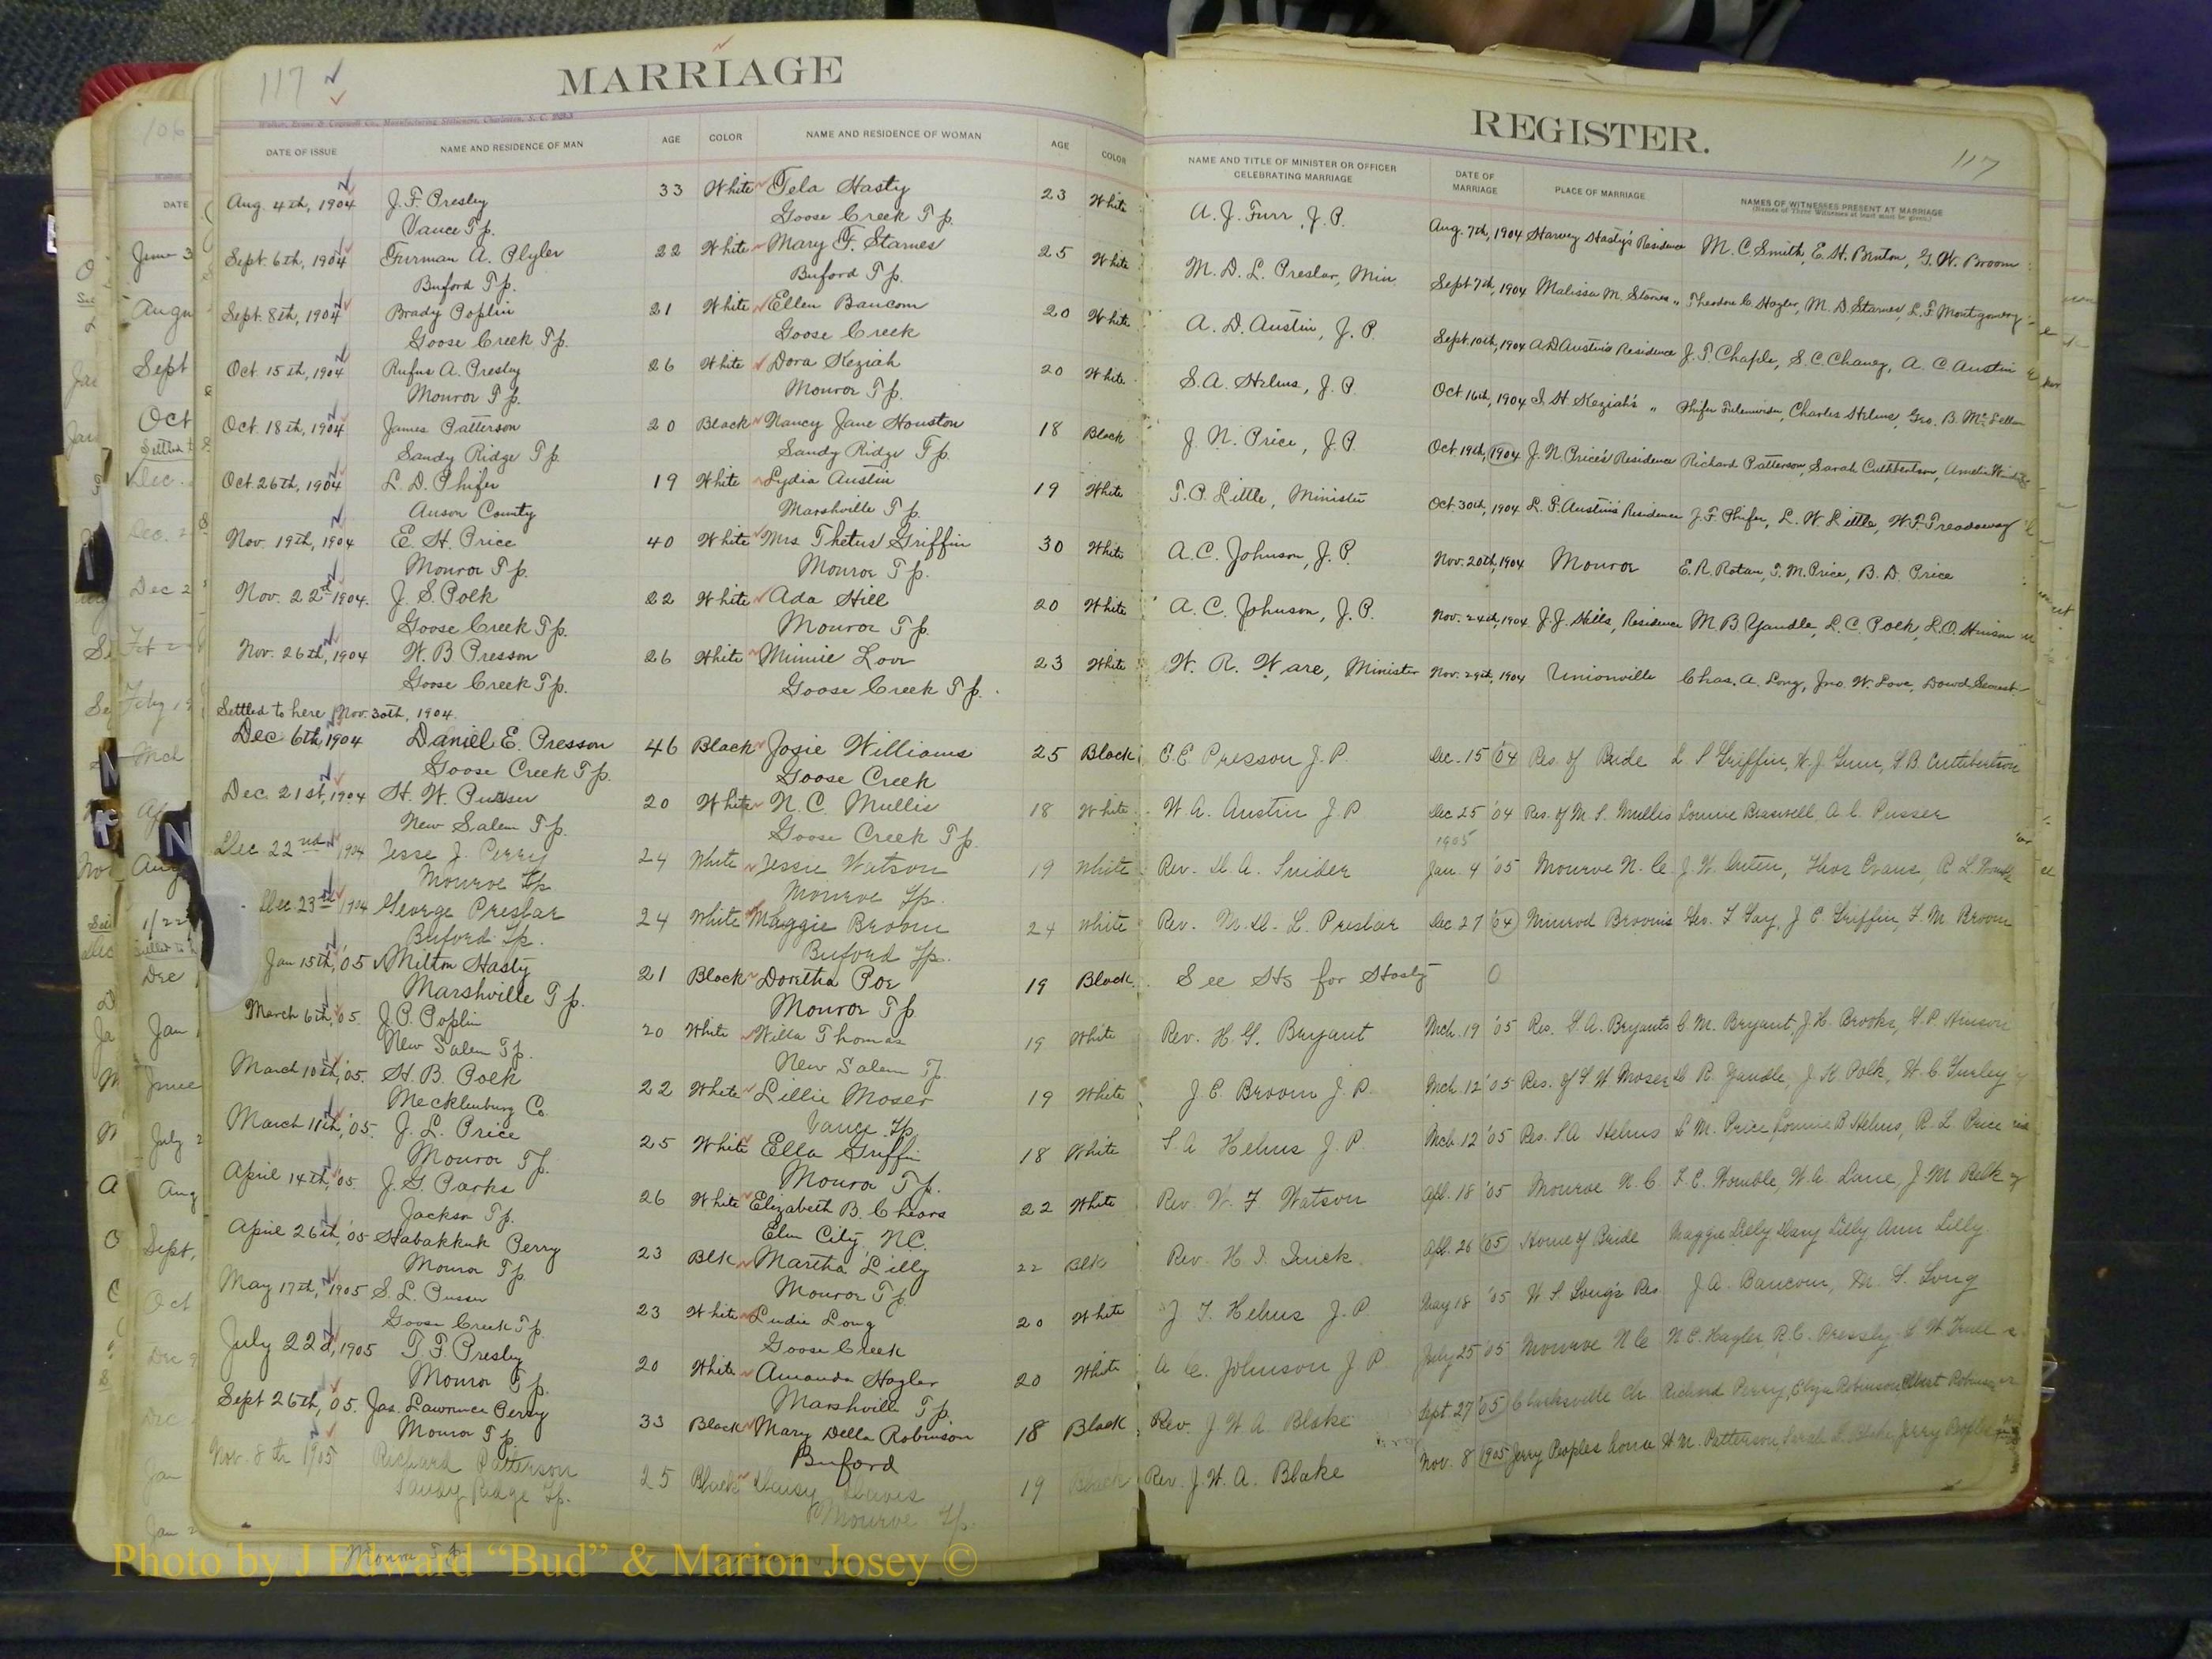 117
MARRIAGE
REGISTER.
117
Walker, Evans & Cogswell Co., Manufacturing Stationers, Charleston, S. C.
DATE OF ISSUE NAME AND RESIDENCE OF MAN AGE COLOR NAME AND RESIDENCE OF WOMAN AGE COLOR NAME AND TITLE OF MINISTER OR OFFICER CELEBRATING MARRIAGE DATE OF MARRIAGE PLACE OF MARRIAGE NAMES OF WITNESSES PRESENT AT MARRIAGE
(Names of Three Witnesses at least must be given.)
Aug. 4th, 1904 J. F. Presley 33 White Tela Hasty 23 White A. J. Furr, J. P. Aug. 7th, 1904 Harvey Hasty's Residence M. C. Smith, E. H. Benton, G. W. Broom
Vance Tp. Goose Creek Tp.
Sept. 6th, 1904 Furman A. Plyler 22 White Mary F. Starnes 25 White M. D. L. Preslar, Min Sept 7th, 1904 Malissa M. Starnes " Theodore C. Hagler, M. D. Starnes, L. F. Montgomery
Buford Tp. Buford Tp.
Sept. 8th, 1904 Brady Poplin 21 White Ellen Baucom 20 White A. D. Austin, J. P. Sept. 10th, 1904 A D Austin's Residence J. T. Chaple, S. C. Chaney, A. C. Austin
Goose Creek Tp. Goose Creek
Oct. 15th, 1904 Rufus A. Presley 26 White Dora Keziah 20 White S. A. Helms, J. P. Oct. 16th, 1904 S. H. Keziah's " Phifer Fulenwider, Charles Helms, Geo. B. McLellan
Monroe Tp. Monroe Tp.
Oct. 18th, 1904 James Patterson 20 Black Nancy Jane Houston 18 Black J. N. Price, J. P. Oct 19th, 1904 J. N. Price's Residence Richard Patterson, Sarah Cuthbertson,
Sandy Ridge Tp. Sandy Ridge Tp.
Oct. 26th, 1904 L. D. Phifer 19 White Lydia Austin 19 White T. P. Little, Minister Oct. 30th, 1904 L. P. Austin's Residence J. F. Phifer, L. W. Little, W. F. Treadaway
Anson County Marshville Tp.
Nov. 19th, 1904 E. H. Price 40 White Mrs. Thetus Griffin 30 White A. C. Johnson, J. P. Nov. 20th, 1904 Monroe E. R. Rotan, T. M. Price, B. D. Price
Monroe Tp. Monroe Tp.
Nov. 22nd 1904. J. S. Polk 22 White Ada Hill 20 White A. C. Johnson, J. P. Nov. 24th, 1904 J. J. Hills, Residence M. B. Yandle, L. C. Polk, L. O. Hinson
Goose Creek Tp. Monroe Tp.
Nov. 26th, 1904 W. B. Presson 26 White Minnie Love 23 White W. R. Ware, Minister Nov. 29th, 1904 Unionville Chas. A. Long, Jno. W. Love, Dowd Secrest
Goose Creek Tp. Goose Creek Tp.
Settled to here Nov. 30th, 1904.
Dec 6th, 1904 Daniel E. Presson 46 Black Josie Williams 25 Black E. E Presson J. P. Dec. 15 '04 Res of Bride L S Griffin, W. J. Gunn, S. B. Cuthbertson
Goose Creek Tp. Goose Creek
Dec. 21st, 1904 H. W. Pusser 20 White N. C. Mullis 18 White W. A. Austin J. P Dec 25 '04 Res. of M. S. Mullis Lonnie Braswell, A. C. Pusser
New Salem Tp. Goose Creek Tp.
1905
Dec 22nd 1904 Jesse J. Perry 24 White Jessie Watson 19 White Rev. D. A. Snider Jan. 4 '05 Monroe N. C. J. W. Outen, Thos Evans, R L
Monroe Tp Monroe Tp.
Dec. 23rd 1904 George Preslar 24 White Maggie Broom 24 White Rev. M. D. L. Preslar Dec 27 '04 Nimrod Broom's Geo. T Gay, J E Griffin, F. M. Broom
Buford Tp. Buford Tp.
Jan 15th, '05 Milton Hasty 21 Black Doretha Poe 19 Black See Hs for Hasty 0
Marshville Tp. Monroe Tp
March 6th, '05. J. P. Poplin 20 White Willa Thomas 19 White Rev. H. G. Bryant Mch. 19 '05 Res. G. A. Bryants C. M. Bryant, J. H. Brooks, G. P. Hinson
New Salem Tp. New Salem Tp
March 10th, '05. H. B. Polk 22 White Lillie Moser 19 White J. E. Broom J. P. Mch. 12 '05 Res. of G W Moser D. R. Yandle, J. K Polk, H. C Gurley
Mecklenburg Co. Vance Tp
March 11th, '05. J. L. Price 25 White Ella Griffin 18 White S. A Helms J. P. Mch. 12 '05 Res. S. A Helms L. M. Price, Lonnie B Helms, R. L. Price
Monroe Tp. Monroe Tp.
April 14th, '05. J. G. Parks 26 White Elizabeth B. Chears 22 White Rev. W. F Watson Apl. 18 '05 Monroe N. C. T. C. Womble, W. A. Lane, J. M Belk
Jackson Tp. Elm City, N.C.
April 26th, '05 Habakkuk Perry 23 Blk Martha Lilly 22 Blk Rev. H. I. Quick. Apl. 26 '05 Home of Bride Maggie Lilly Dany Lilly Ann Lilly
Monroe Tp. Monroe Tp.
May 17th, 1905 S. L. Pusser 23 White Ludie Long 20 White J. T. Helms J. P. May 18 '05 W. S Long's Res. J. A. Baucom, M. G. Long
Goose Creek Tp. Goose Creek
July 22d, 1905 T. F. Presley 20 White Amanda Hagler 20 White A. C. Johnson J. P. July 25 '05 Monroe N C N. C. Hagler, R. C. Pressly, C. W. Trull
Monroe Tp. Marshville Tp.
Sept 26th, '05. Jas. Lawrence Perry 33 Black Mary Della Robinson 18 Black Rev. J. W. A. Blake Sept. 27 '05 Clarksville Ch. Richard Perry, Eliza Robinson, Albert Robinson
Monroe Tp. Buford
Nov. 8th 1905 Richard Patterson 25 Black Daisy Davis 19 Black Rev. J. W. A. Blake Nov. 8 1905 Jerry Peoples home H. M. Patterson, Sarah P. Blake, Jerry Peoples
Sandy Ridge Tp. Monroe Tp.
Monroe Tp.
Photo by J Edward “Bud” & Marion Josey ©
106
DATE
June 3
Augu
Sept
Oct
Dec.
Dec. 2
Dec 2
Feb
Mch
Aug
1/22
Dec
Jan
June
July 2
Aug
Sept,
Oct
Dec 9
Dec
Jan
Jan 2